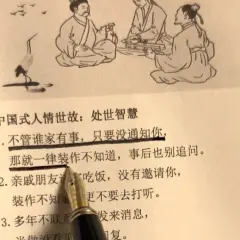 中国式人情世故：处世智慧
1. 不管谁家有事，只要没通知你，
那就一律装作不知道，事后也别追问。
2. 亲戚朋友 吃饭，没有邀请你，
装作不知 更不要去打听。
3. 多年不联 发来消息，